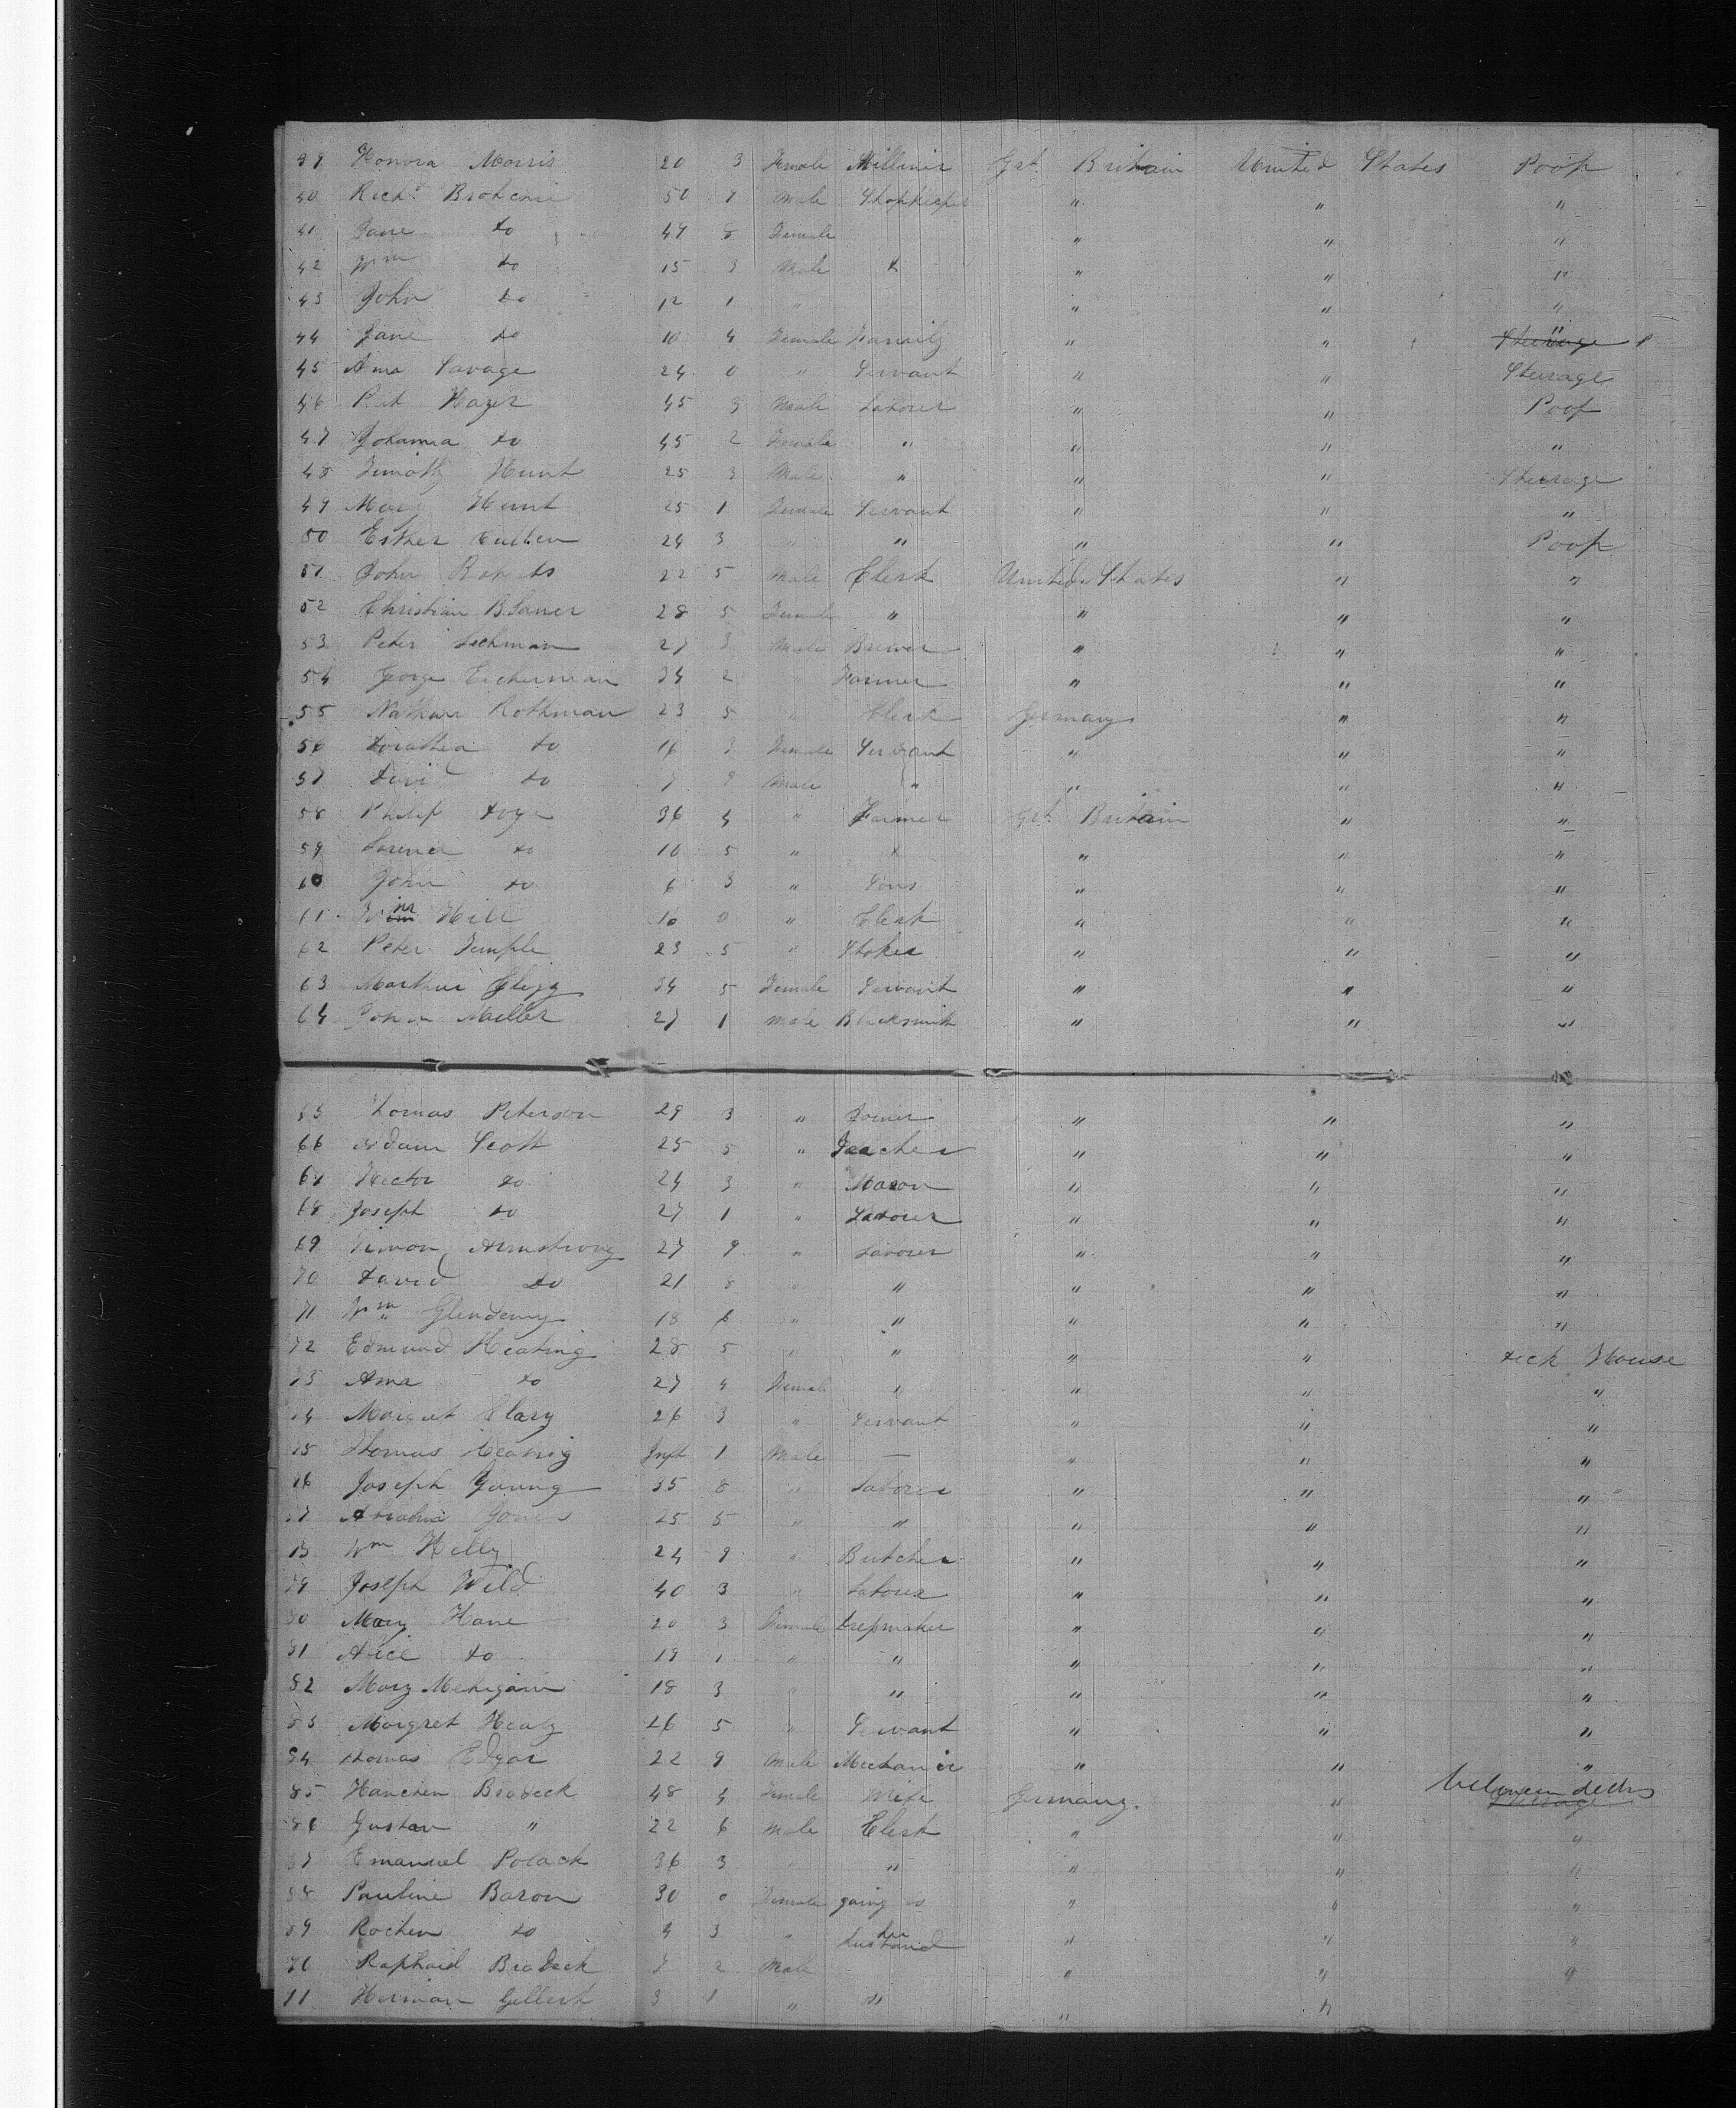 39 Honora Morris 20 3 Female Millinir Grt. Britain United States Poop
40 Richd. 50 1 Male Shopkeeper " " "
41 Jane do 49 8 Female " " "
42 Wm do 15 3 Male " " "
43 John do 12 1 " " " "
44 Jane do 10 4 Female Family " " "
45 Ama Savage 24 0 " Servant " " Steurage
46 Pat 45 3 Male Laborer " " Poop
47 Johanna do 45 2 Female " " " "
48 Timothy Hunt 25 3 Male " " " Steerage
49 Mary Hunt 25 1 Female Servant " " "
50 Esther 24 3 " " " " Poop
51 John Roberts 22 5 Male Clerk United States " "
52 Christian 28 5 Female " " " "
53 Peter 27 3 Male Brewer " " "
54 George 34 2 " Farmer " " "
55 Nathan Rothman 23 5 " Clerk Germany " "
56 Dorathea do 16 3 Female Servant " " "
57 do 7 9 Male " " " "
58 Philip 36 4 " Farmer Grt. Britain " "
59 do 10 5 " " " "
60 John do 6 3 " Sons " " "
61 Hill 0 " Clerk " " "
62 Peter Temple 23 5 " Stoker " " "
63 Clegg 34 5 Female Servant " " "
64 John Miller 27 1 male Blacksmith " " "
65 Thomas Peterson 29 3 " Joiner " " "
66 Adam Scott 25 5 " Teacher " " "
67 Hector do 24 3 " Mason " " "
68 Joseph do 27 1 " Laborer " " "
69 Simon Armstrong 27 9 " Laborer " " "
70 David do 21 8 " " " " "
71 Wm 18 6 " " " " "
72 Edmund Keating 28 5 " " " " Deck House
73 Ama do 27 4 Female " " " "
74 Margret Clary 26 3 " Servant " " "
75 Thomas Keating Inft 1 Male — " " "
76 Joseph Young 35 8 " Laborer " " "
77 Jones 25 5 " " " " "
78 Wm Kelly 24 9 " Butcher " " "
79 Joseph Wild 40 3 " Laborer " " "
80 Mary Kane 20 3 Female Drepmaker " " "
81 Alice do 19 1 " " " " "
82 Mary Mehigain 18 3 " " " " "
83 Margret Healy 26 5 " Servant " " "
84 Thomas Edgar 22 9 Male Mechanic " " "
85 Hanchen Bradeck 48 4 Female Wife Germany. " between decks
86 Gustav " 22 6 Male Clerk " " "
87 Emanuel Polack 36 3 " " " " "
88 Pauline Baron 30 0 Female going to " " "
89 Rochen do 4 3 " her husband " " "
70 Raphaid Bradeck 7 2 Male " " "
71 Herman Gellert 3 1 " " " "